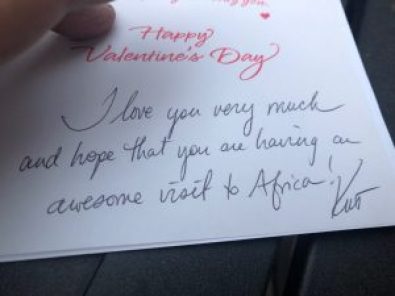 you.
Happy
Valentine's Day
I love you very much
and hope that you are having an
awesome visit to Africa!
Kurt